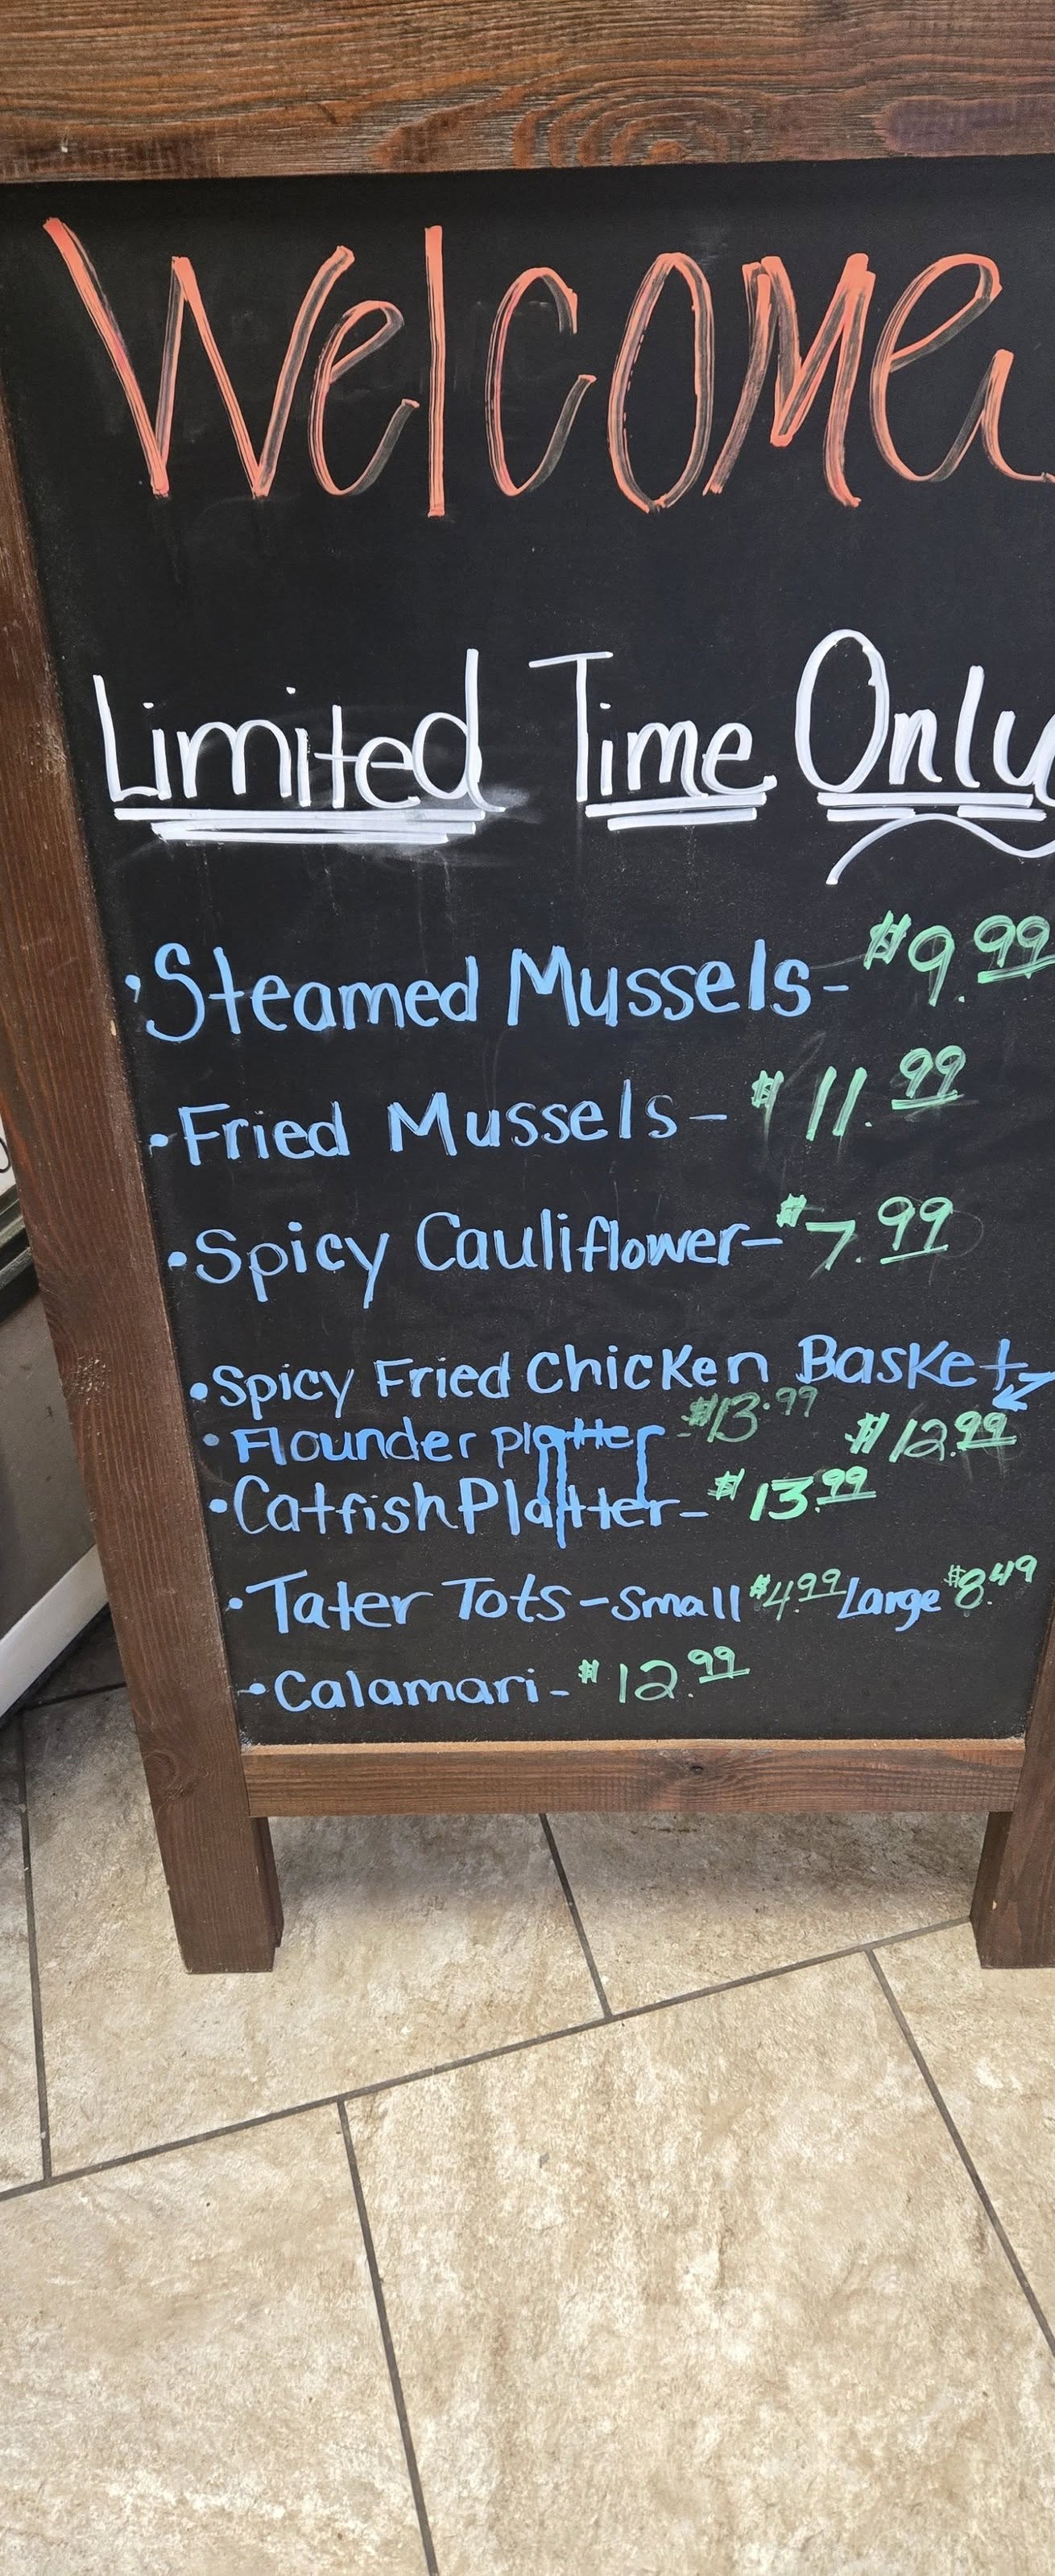 Welcome
Limited Time Only
• Steamed Mussels - $9.99
• Fried Mussels - $11.99
• Spicy Cauliflower - $7.99
• Spicy Fried Chicken Basket
$12.99
• Flounder platter - $13.99
• Catfish Platter - $13.99
• Tater Tots - Small $4.99 Large $8.49
• Calamari - $12.99